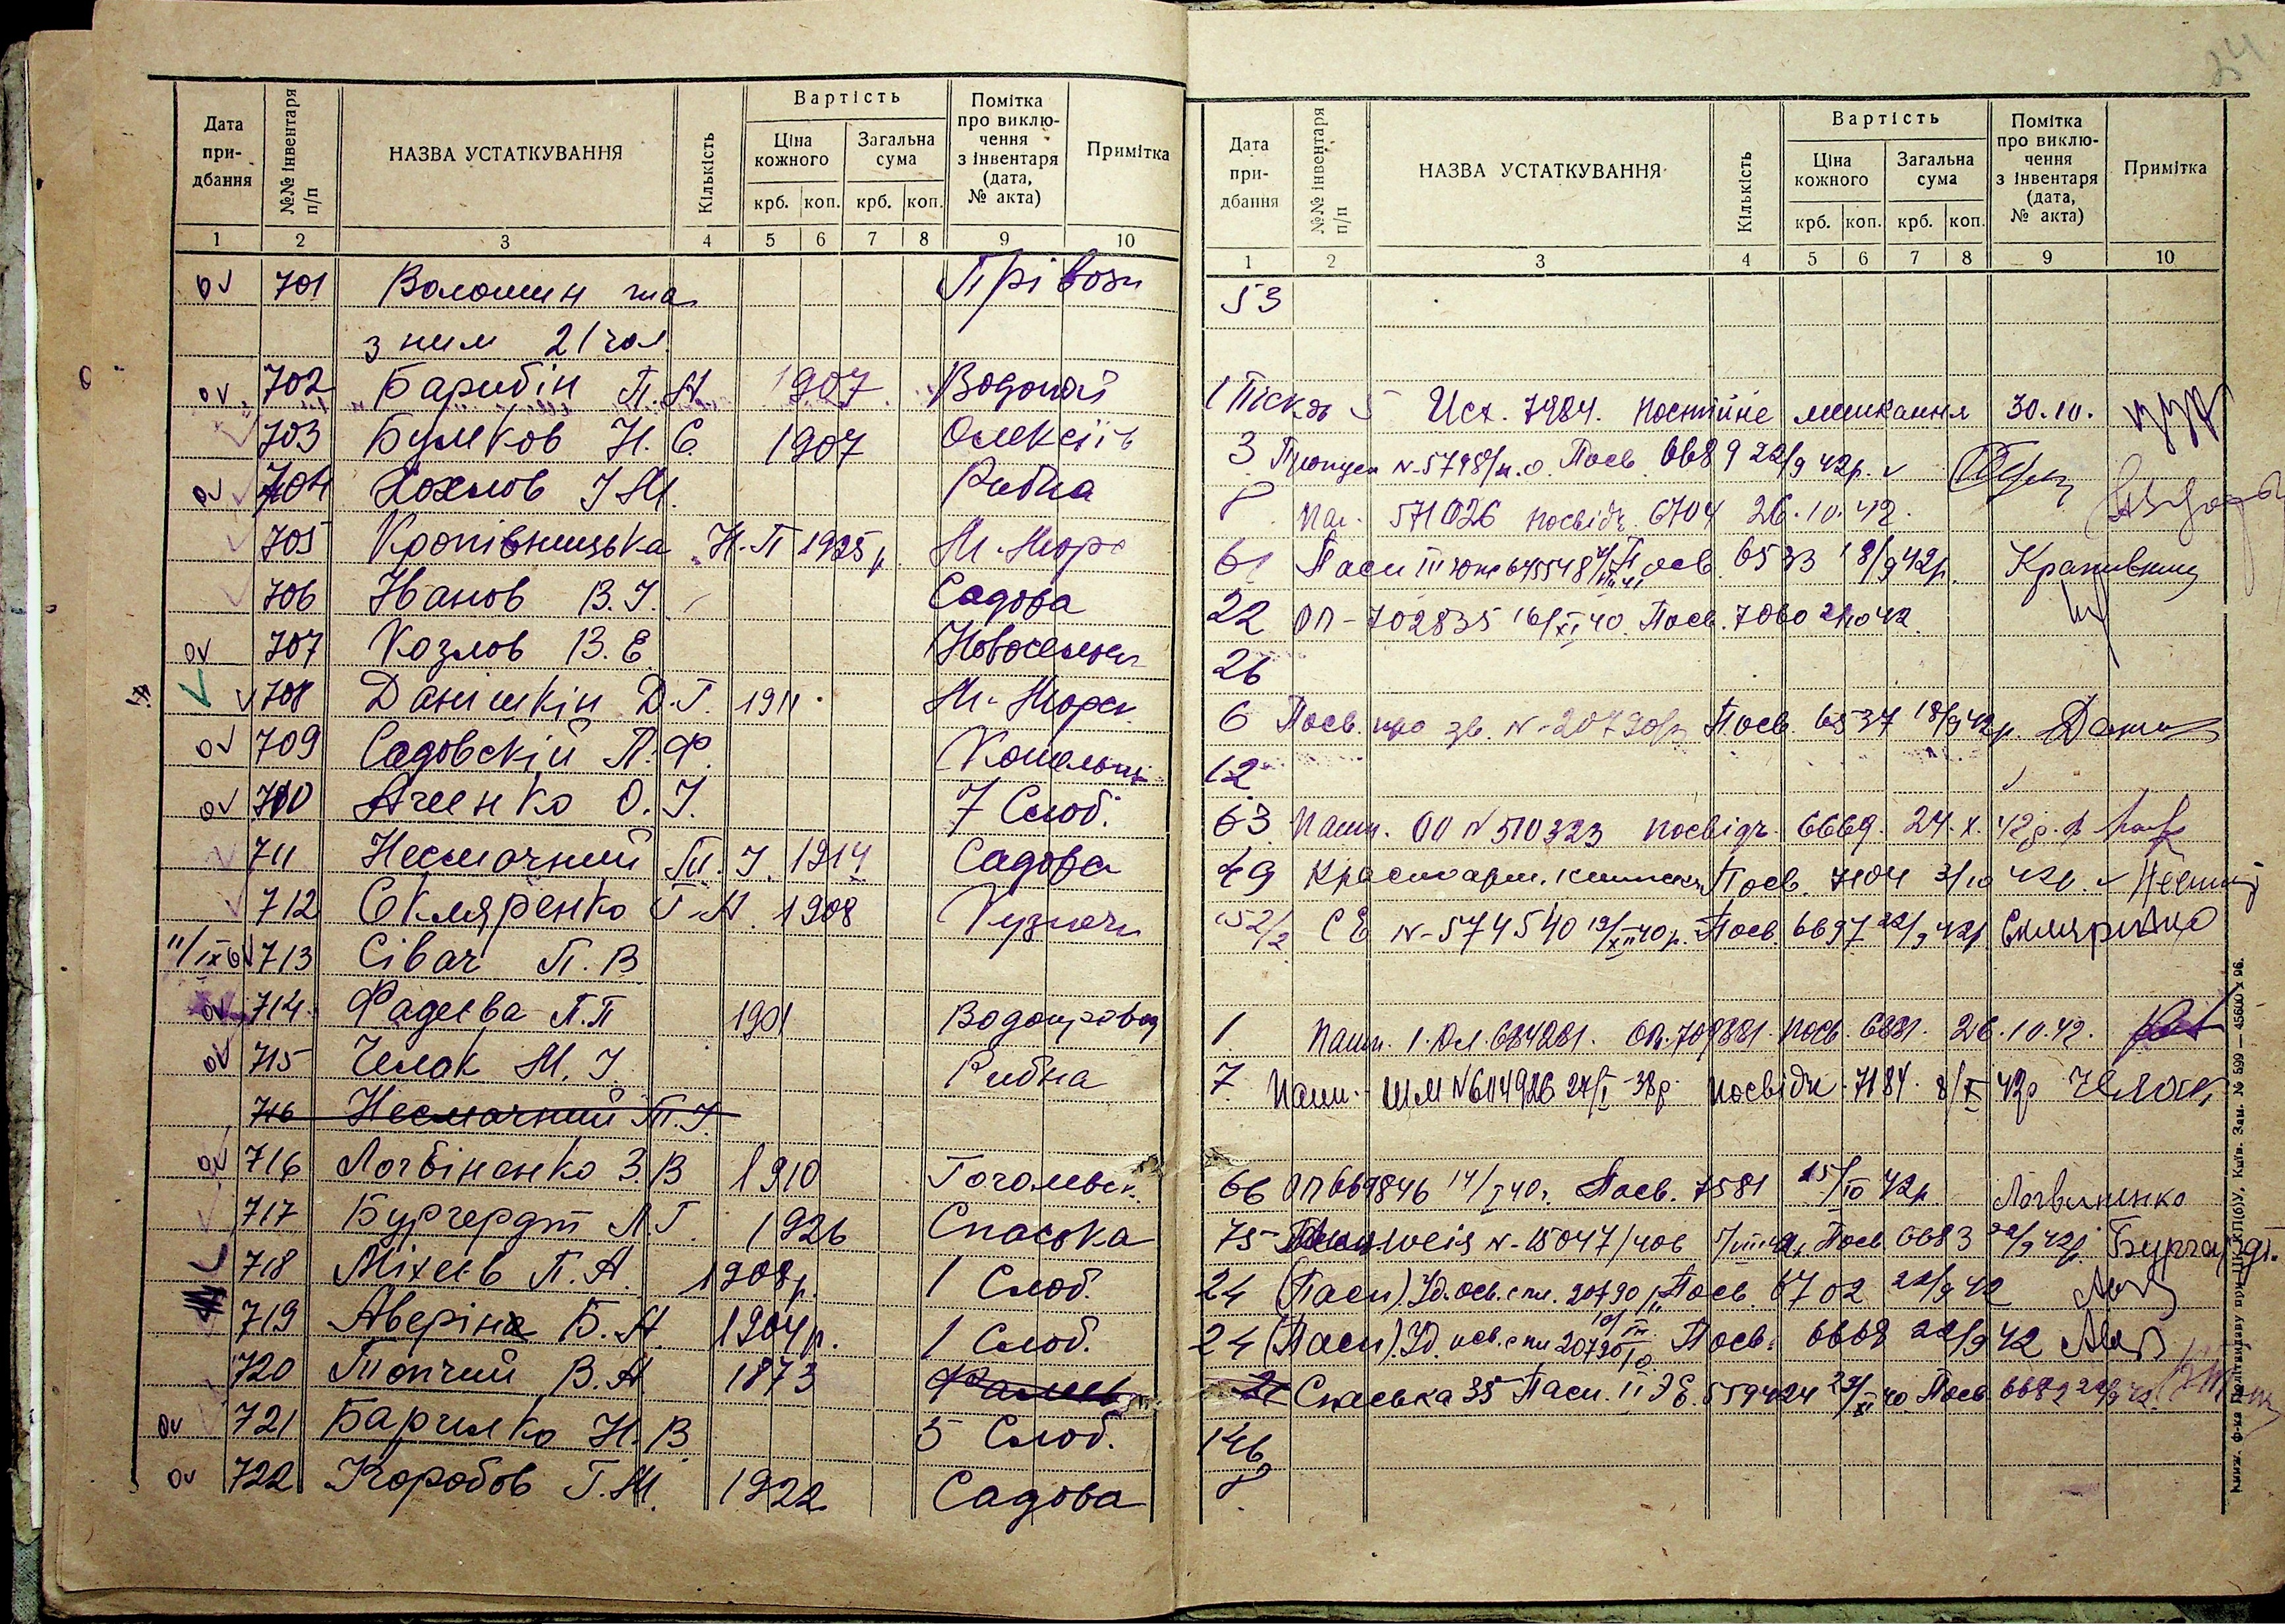 24
Дата при-дбання №№ інвентаря п/п НАЗВА УСТАТКУВАННЯ Кількість Вартість Ціна кожного Загальна сума крб. коп. крб. коп. Помітка про виклю-чення з інвентаря (дата, № акта) Примітка
1 2 3 4 5 6 7 8 9 10
701 Волошин та Прівозн
з ним 21 чол.
702 Барибін П.А. 1907 Водопой
703 Бумков Н. С. 1907 Олексіїв
704 Хохлов І.М. Рибна
705 Кропівницька Н.П 1925 р. М.-Морс
706 Іванов В.І. Садова
707 Козлов В.Е. Новосельск
708 Данішкін Д.Г. 1911 М.-Морск
709 Садовскій П.Ф.
710 О.І. 7 Слоб.
711 Несмачний П.І. 1914 Садова
712 Скляренко Г.А. 1908 Кузнечн
11/IX 713 Сівач П.В
714 Фадеєва П.П 1901 Водопровод
715 Челак М.І. Рибна
716 Несмачний П.І.
716 Логвіненко З.В 1910 Гоголевск.
717 Бургердт Л.Г. 1926 Спаська
718 Міхеєв П.А. 1908р. 1 Слоб.
719 Аверіна Б.А. 1904р. 1 Слоб.
720 Топчий В.А 1873
721 Барилко Н.В. 5 Слоб.
722 Коробов Г.М. 1922 Садова
Дата при-дбання №№ інвентаря п/п НАЗВА УСТАТКУВАННЯ Кількість Вартість Ціна кожного Загальна сума крб. коп. крб. коп. Помітка про виклю-чення з інвентаря (дата, № акта) Примітка
1 2 3 4 5 6 7 8 9 10
53
1 Піск 5 Исх. 7984. постійне мешкання 30.10.
3 Пропуск N-5798/н.о. Посв. 6689 22/9 42р.
8 Паш. 571026 посвідч. 6704 26.10.42.
61 Пасп III 645548 Посв. 6533 18/9 42р.
22 ОП-702835 16/XI 40. Посв. 7060 2/10 42.
26
6 Посв. про зв. N-20790/ Посв. 6537 18/9 42р.
12
63 Пашп. ОО N 510323 посвідч. 6669. 24.X. 42р.
49 Красноарм. книжка Посв. 7104 3/10 42р.
52/2 СЕ N-574540 19/XII 40р. Посв. 6697 22/9 42р Скляренко
1 Пашп. 684281. посв. 6881. 26.10.42.
7 Пашп. ШМ N 614926 27/I 38р. посвідч. 7184. 8/X 42р Челак
66 ОП 669846 14/I 40р. Посв. 7581 15/10 42р. Логвиненко
75 N-15047/406 Посв 6683 22/9 42р. Бургардт.
24 (Пасп). Уд. осв. с пл. 20790 Посв. 6702 22/9 42
24 (Пасп). Уд. осв. с пл 20790 Посв. 6668 22/9 42
Спаська 35 Пасп. II ЭЕ. 559424 Посв 6682
146
8
Книж. ф-ка Політвидаву при ЦК КП(б)У, Київ. Зам. № 599 — 45600 x 96.